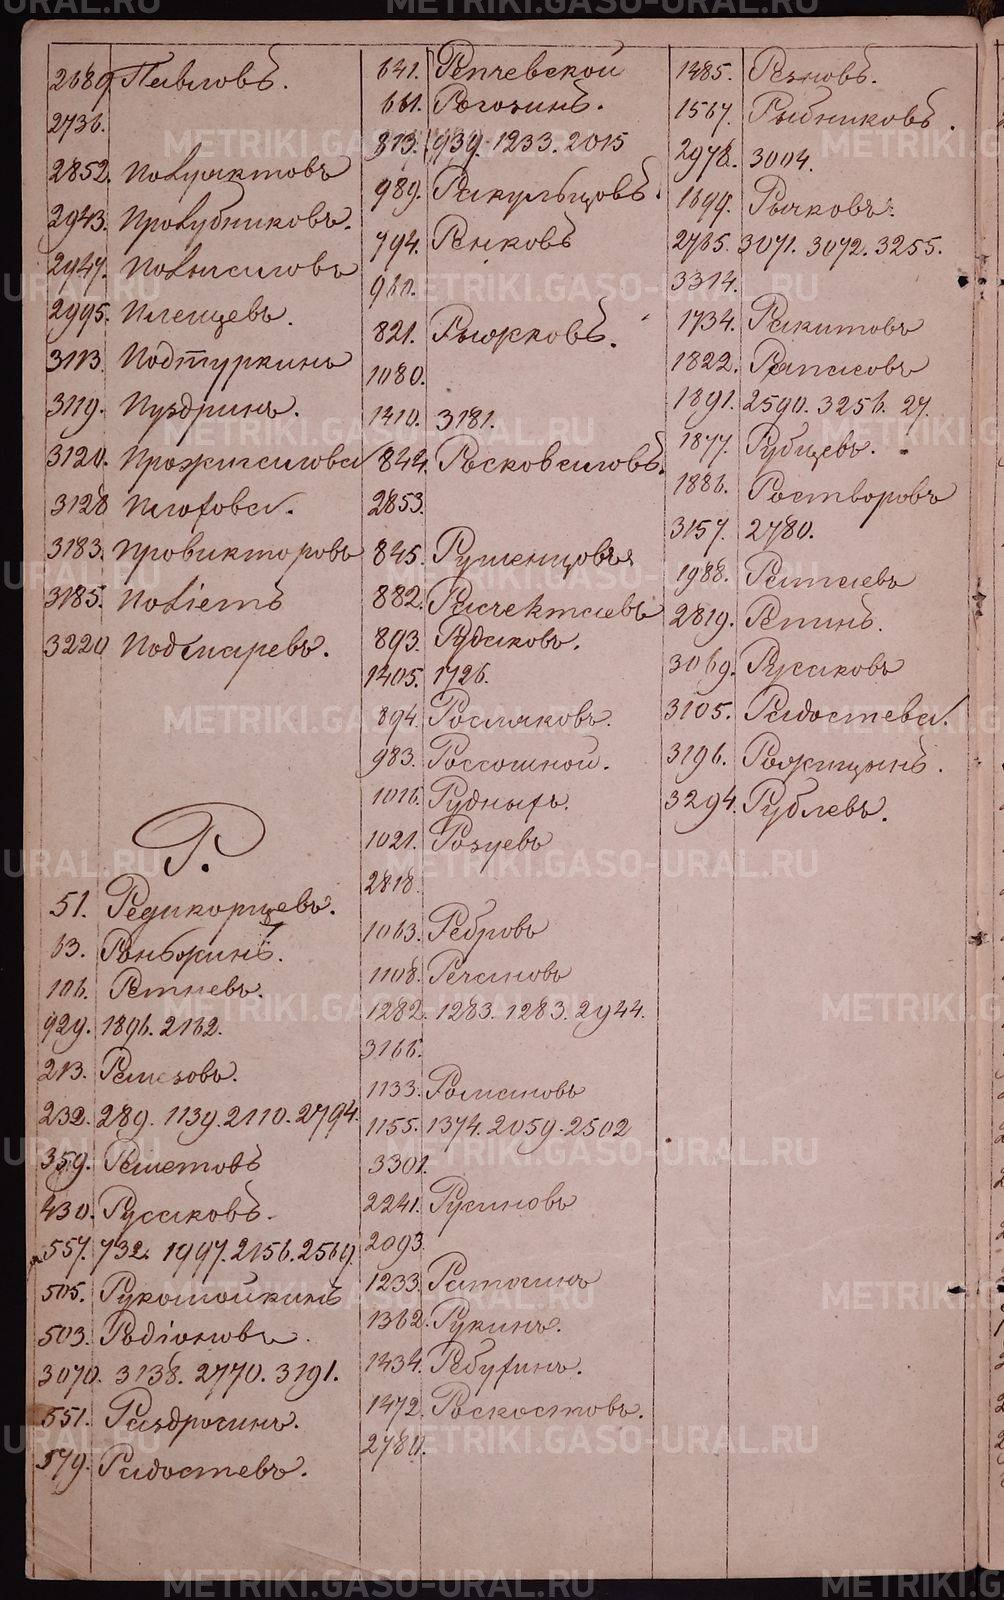 2689. Павловъ.
2736.
2852. Полуяктовъ
2943. Пролубниковъ.
2947.
2995. Плещевъ.
3113. Подтуркинъ
3119. Пуздринъ.
3120.
3128 Плохова.
3183. Провикторовъ
3185.
3220
Р.
51. Редикорцевъ.
63.
106. Ретневъ.
929. 1896. 2162.
213. Ремезовъ.
232. 289. 1139. 2110. 2794.
359. Решетовъ
430. Русаковъ.
557. 732. 1997. 2156. 2569.
505. Рукомойкинъ
503. Родіоновъ.
3070. 3138. 2770. 3191.
551.
579. Радостевъ.
641. Репчевской
661. Рогозинъ.
813. 939. 1233. 2015
989. Ракульцовъ.
794. Ренковъ
960.
821. Рыжковъ.
1080.
1410. 3181.
844.
2853.
845. Руменцовъ
882.
893. Рудаковъ.
1405. 1726.
894. Росляковъ.
983. Россошной.
1016. Рудныхъ.
1021. Розуевъ
2818.
1063. Ребровъ
1108. Речановъ
1282. 1283. 1283. 2944.
3166.
1133. Романовъ
1155. 1374. 2059. 2502
3301.
2241. Русиновъ
2093.
1233.
1362. Рукинъ.
1434. Ребухинъ.
1472.
2780.
1485. Резновъ.
1567. Рыбниковъ.
2978. 3004.
1699. Рычковъ.
2765. 3071. 3072. 3255.
3314.
1734. Ракитовъ
1822.
1891. 2590. 3256. 27.
1877. Рубцевъ.
1886. Растворовъ
3157. 2780.
1988. Ратаевъ
2819. Репинъ.
3069. Русаковъ
3105. Радостева.
3196. Рожицынъ.
3294. Рублевъ.
METRIKI.GASO-URAL.RU